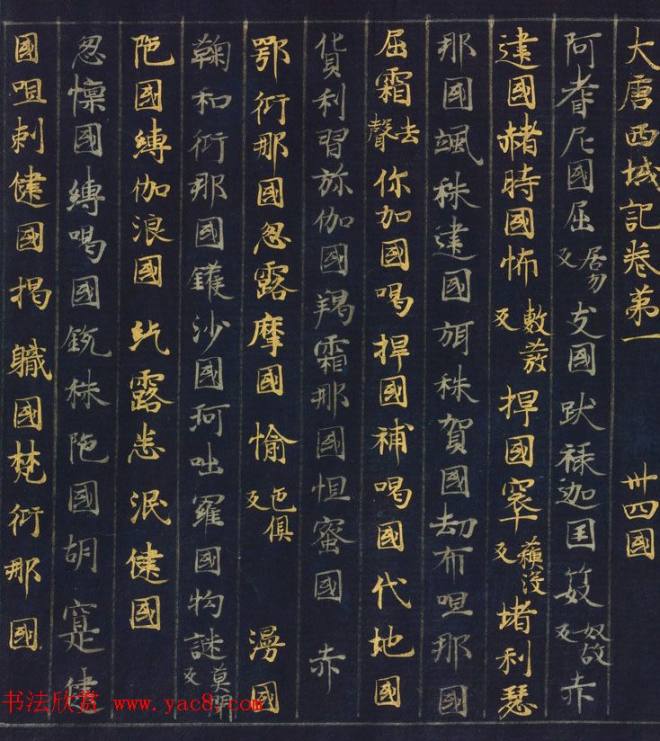 大唐西域記卷第一 卅四國
阿耆尼國屈居勿反支國跋禄迦国笯奴故反赤
建國赭時國怖敷發反捍國窣蘓没反堵利瑟
那國颯秣建國弭秣賀國劫布呾那國
屈霜去聲你加國喝捍國補喝國代地國
貨利習弥伽國羯霜那國怛蜜國 赤
鄂衍那國忽露摩國愉俱反漫國
鞠和衍那國鑊沙國珂咄羅國拘謎莫反
陁國縛伽浪國 紇露悉泯健國
忽懍國縛喝國銳秣陁國胡寔健
國呾剌健國揭職國梵衍那國
书法欣赏 www.yac8.com